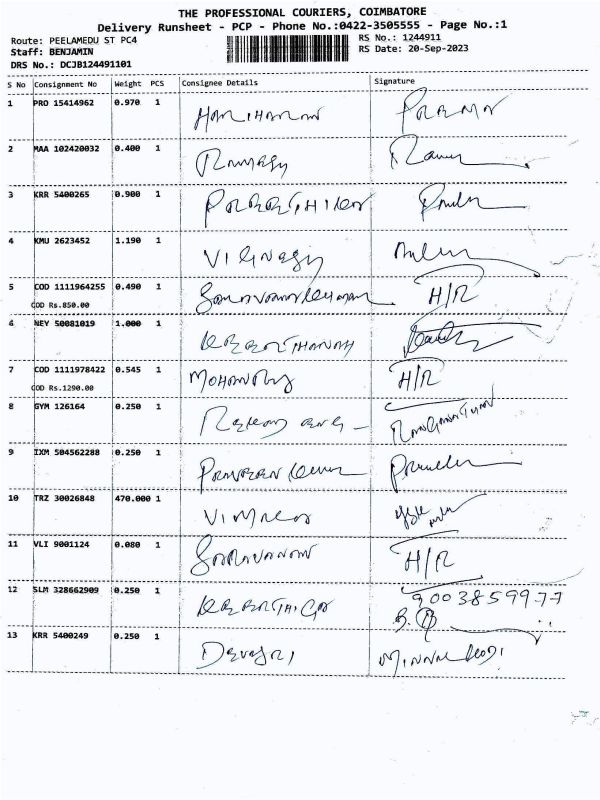 THE PROFESSIONAL COURIERS, COIMBATORE
Delivery Runsheet - PCP - Phone No.:0422-3505555 - Page No.:1
Route: PEELAMEDU ST PC4 RS No.: 1244911
Staff: BENJAMIN RS Date: 20-Sep-2023
DRS No.: DCJB124491101
S No Consignment No Weight PCS Consignee Details Signature
1 PRO 15414962 0.970 1 HARIHARAN
2 MAA 102420032 0.400 1 Ramesh
3 KRR 5400265 0.900 1
4 KMU 2623452 1.190 1 VIGNESH
5 COD 1111964255 0.490 1 H/R
COD Rs.850.00
6 NEY 50081019 1.000 1
7 COD 1111978422 0.545 1 MOHANRAJ H/R
COD Rs.1290.00
8 GYM 126164 0.250 1
9 IXM 504562288 0.250 1
10 TRZ 30026848 470.000 1
11 VLI 9001124 0.080 1 SARAVANAN H/R
12 SLM 328662909 0.250 1 KEERTHIGA 9003859977
13 KRR 5400249 0.250 1 MINNAL KODI